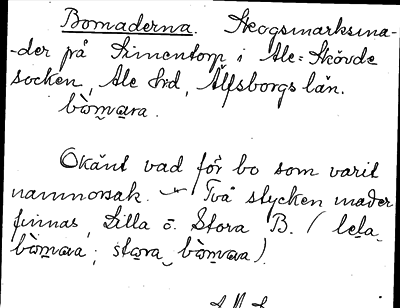 Bomaderna. Skogsmarksma-
-der på Simentorp i Ale-Skövde
socken, Ale hrd, Älfsborgs län.
bòmara.
Okänt vad för bo som varit
namnorsak. – Två stycken mader
finnas, Lilla o. Stora B. (lela
bòmara; stora bòmara).